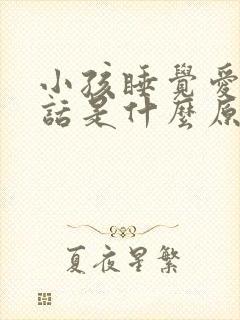 小孩睡覺愛
話是什麼原
夏夜星繁